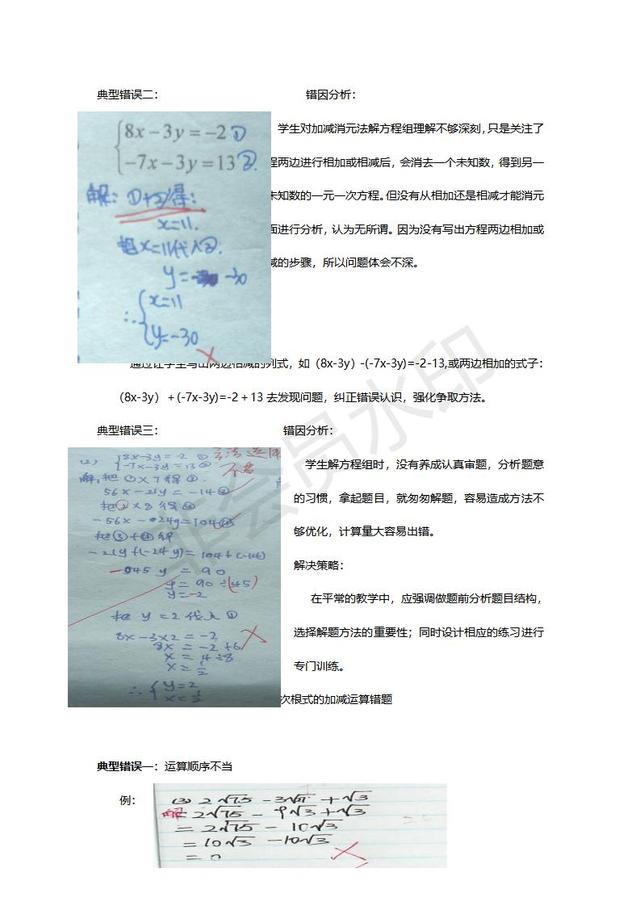 典型错误二：
错因分析：
8x－3y＝－2①
－7x－3y＝13②.
解：①+②得：
x=11.
把x=11代入②.
y= -30
∴{x=11
y=-30
学生对加减消元法解方程组理解不够深刻，只是关注了
程两边进行相加或相减后，会消去一个未知数，得到另一
未知数的一元一次方程。但没有从相加还是相减才能消元
面进行分析，认为无所谓。因为没有写出方程两边相加或
减的步骤，所以问题体会不深。
通过让学生写出两边相减的列式，如（8x-3y）-(-7x-3y)=-2-13,或两边相加的式子：
（8x-3y）＋(-7x-3y)=-2＋13 去发现问题，纠正错误认识，强化争取方法。
典型错误三：
错因分析：
(2) {8x-3y=-2 ①
-7x-3y=13 ②
解：把①×7得③
56x-21y=-14③
把②×8得④
-56x-24y=104④
把③+④得
-21y+(-24y)=104+(-14)
-45y=90
y=90÷(-45)
y=-2
把 y=2代入①
8x-3×2=-2
8x=-2+6
x=4÷8
x=1/2
∴{y=2
x=1/2
学生解方程组时，没有养成认真审题，分析题意
的习惯，拿起题目，就匆匆解题，容易造成方法不
够优化，计算量大容易出错。
解决策略：
在平常的教学中，应强调做题前分析题目结构，
选择解题方法的重要性；同时设计相应的练习进行
专门训练。
次根式的加减运算错题
典型错误一：运算顺序不当
例：
(3) 2√75 - 3√27 + √3
解=2√75 - 9√3+√3
= 2√75 - 10√3
= 10√3 - 10√3
= 0
非会员水印